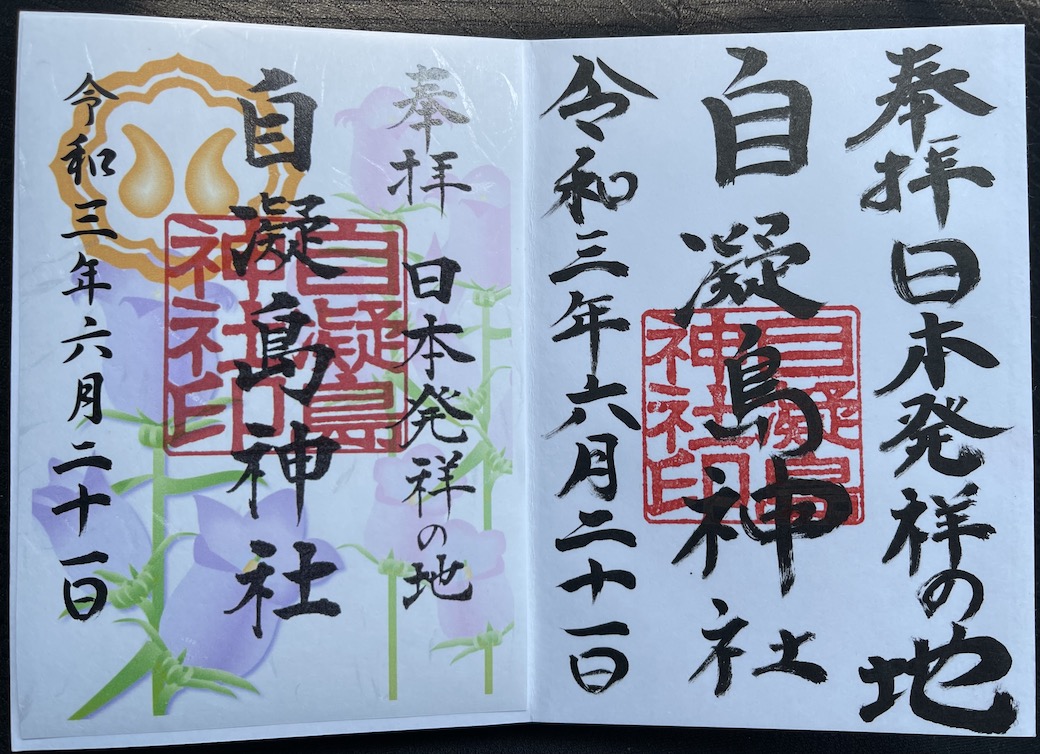 奉拝 日本発祥の地
自凝島神社
自凝島
神社印
令和三年六月二十一日
奉拝
日本発祥の地
自凝島神社
自凝島
神社印
令和三年六月二十一日